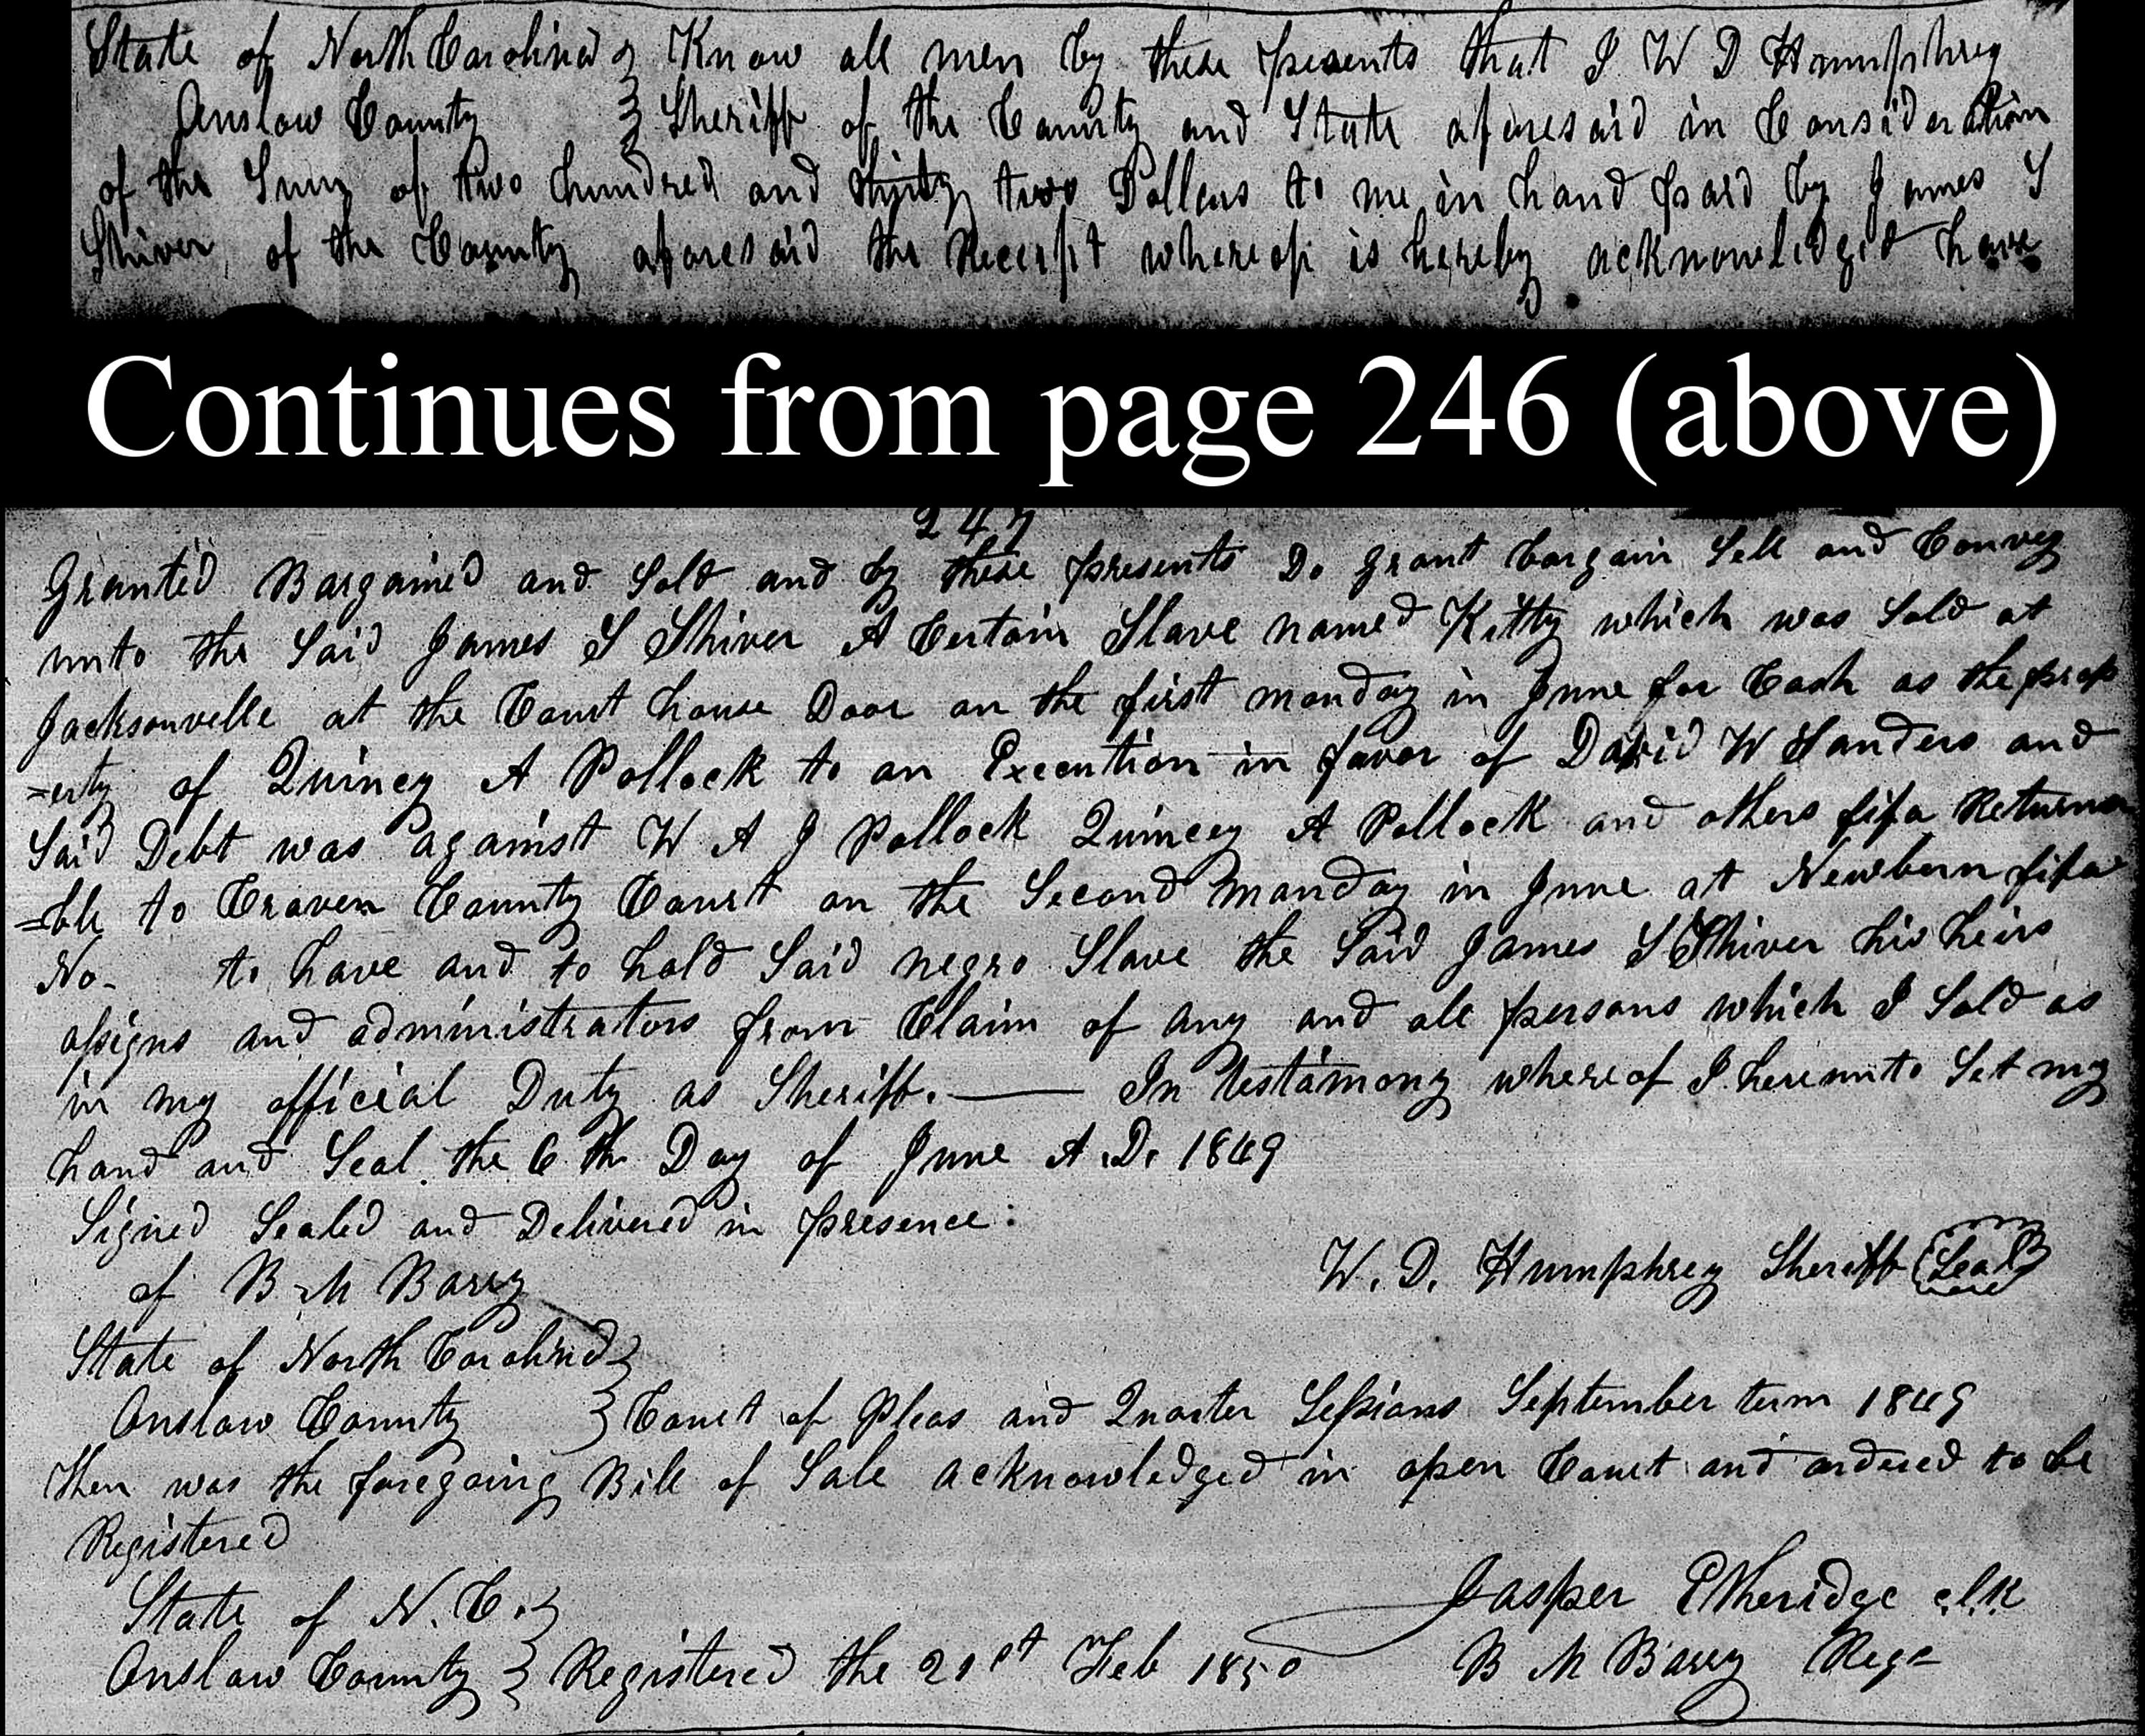 State of North Carolina } Know all men by these presents that I W D Humphrey
Onslow County } Sheriff of the County and State aforesaid in Consideration
of the Sum of two hundred and thirty two Dollars to me in hand paid by James S
Shiver of the County aforesaid the Receipt whereof is hereby acknowledged have
Continues from page 246 (above)
247
Granted Bargained and Sold and by these presents Do grant bargain Sell and Convey
unto the Said James S Shiver A Certain Slave named Kitty which was Sold at
Jacksonville at the Court house Door on the first monday in June for Cash as the prop
=erty of Quincy A Pollock to an Execution in favor of David W Sanders and
Said Debt was against W A J Pollock Quincey A Pollock and others fifa Returna
=ble to Craven County Court on the Second Monday in June at Newbern fifa
No- to have and to hold Said negro Slave the Said James S Shiver his heirs
assigns and administrators from Claim of any and all persons which I Sold as
in my official Duty as Sheriff. — In testamony whereof I hereunto Set my
hand and Seal the 6th Day of June A.D. 1849
Signed Sealed and Delivered in presence:
of B M Barry
W. D. Humphrey Sheriff (Seal)
State of North Carolina }
Onslow County } Court of Pleas and Quarter Sessions September term 1849
Then was the foregoing Bill of Sale acknowledged in open Court and ordered to be
Registered
Jasper Etheridge clk
State of N. C. }
Onslow County } Registered the 21st Feb 1850 B M Barry Regr